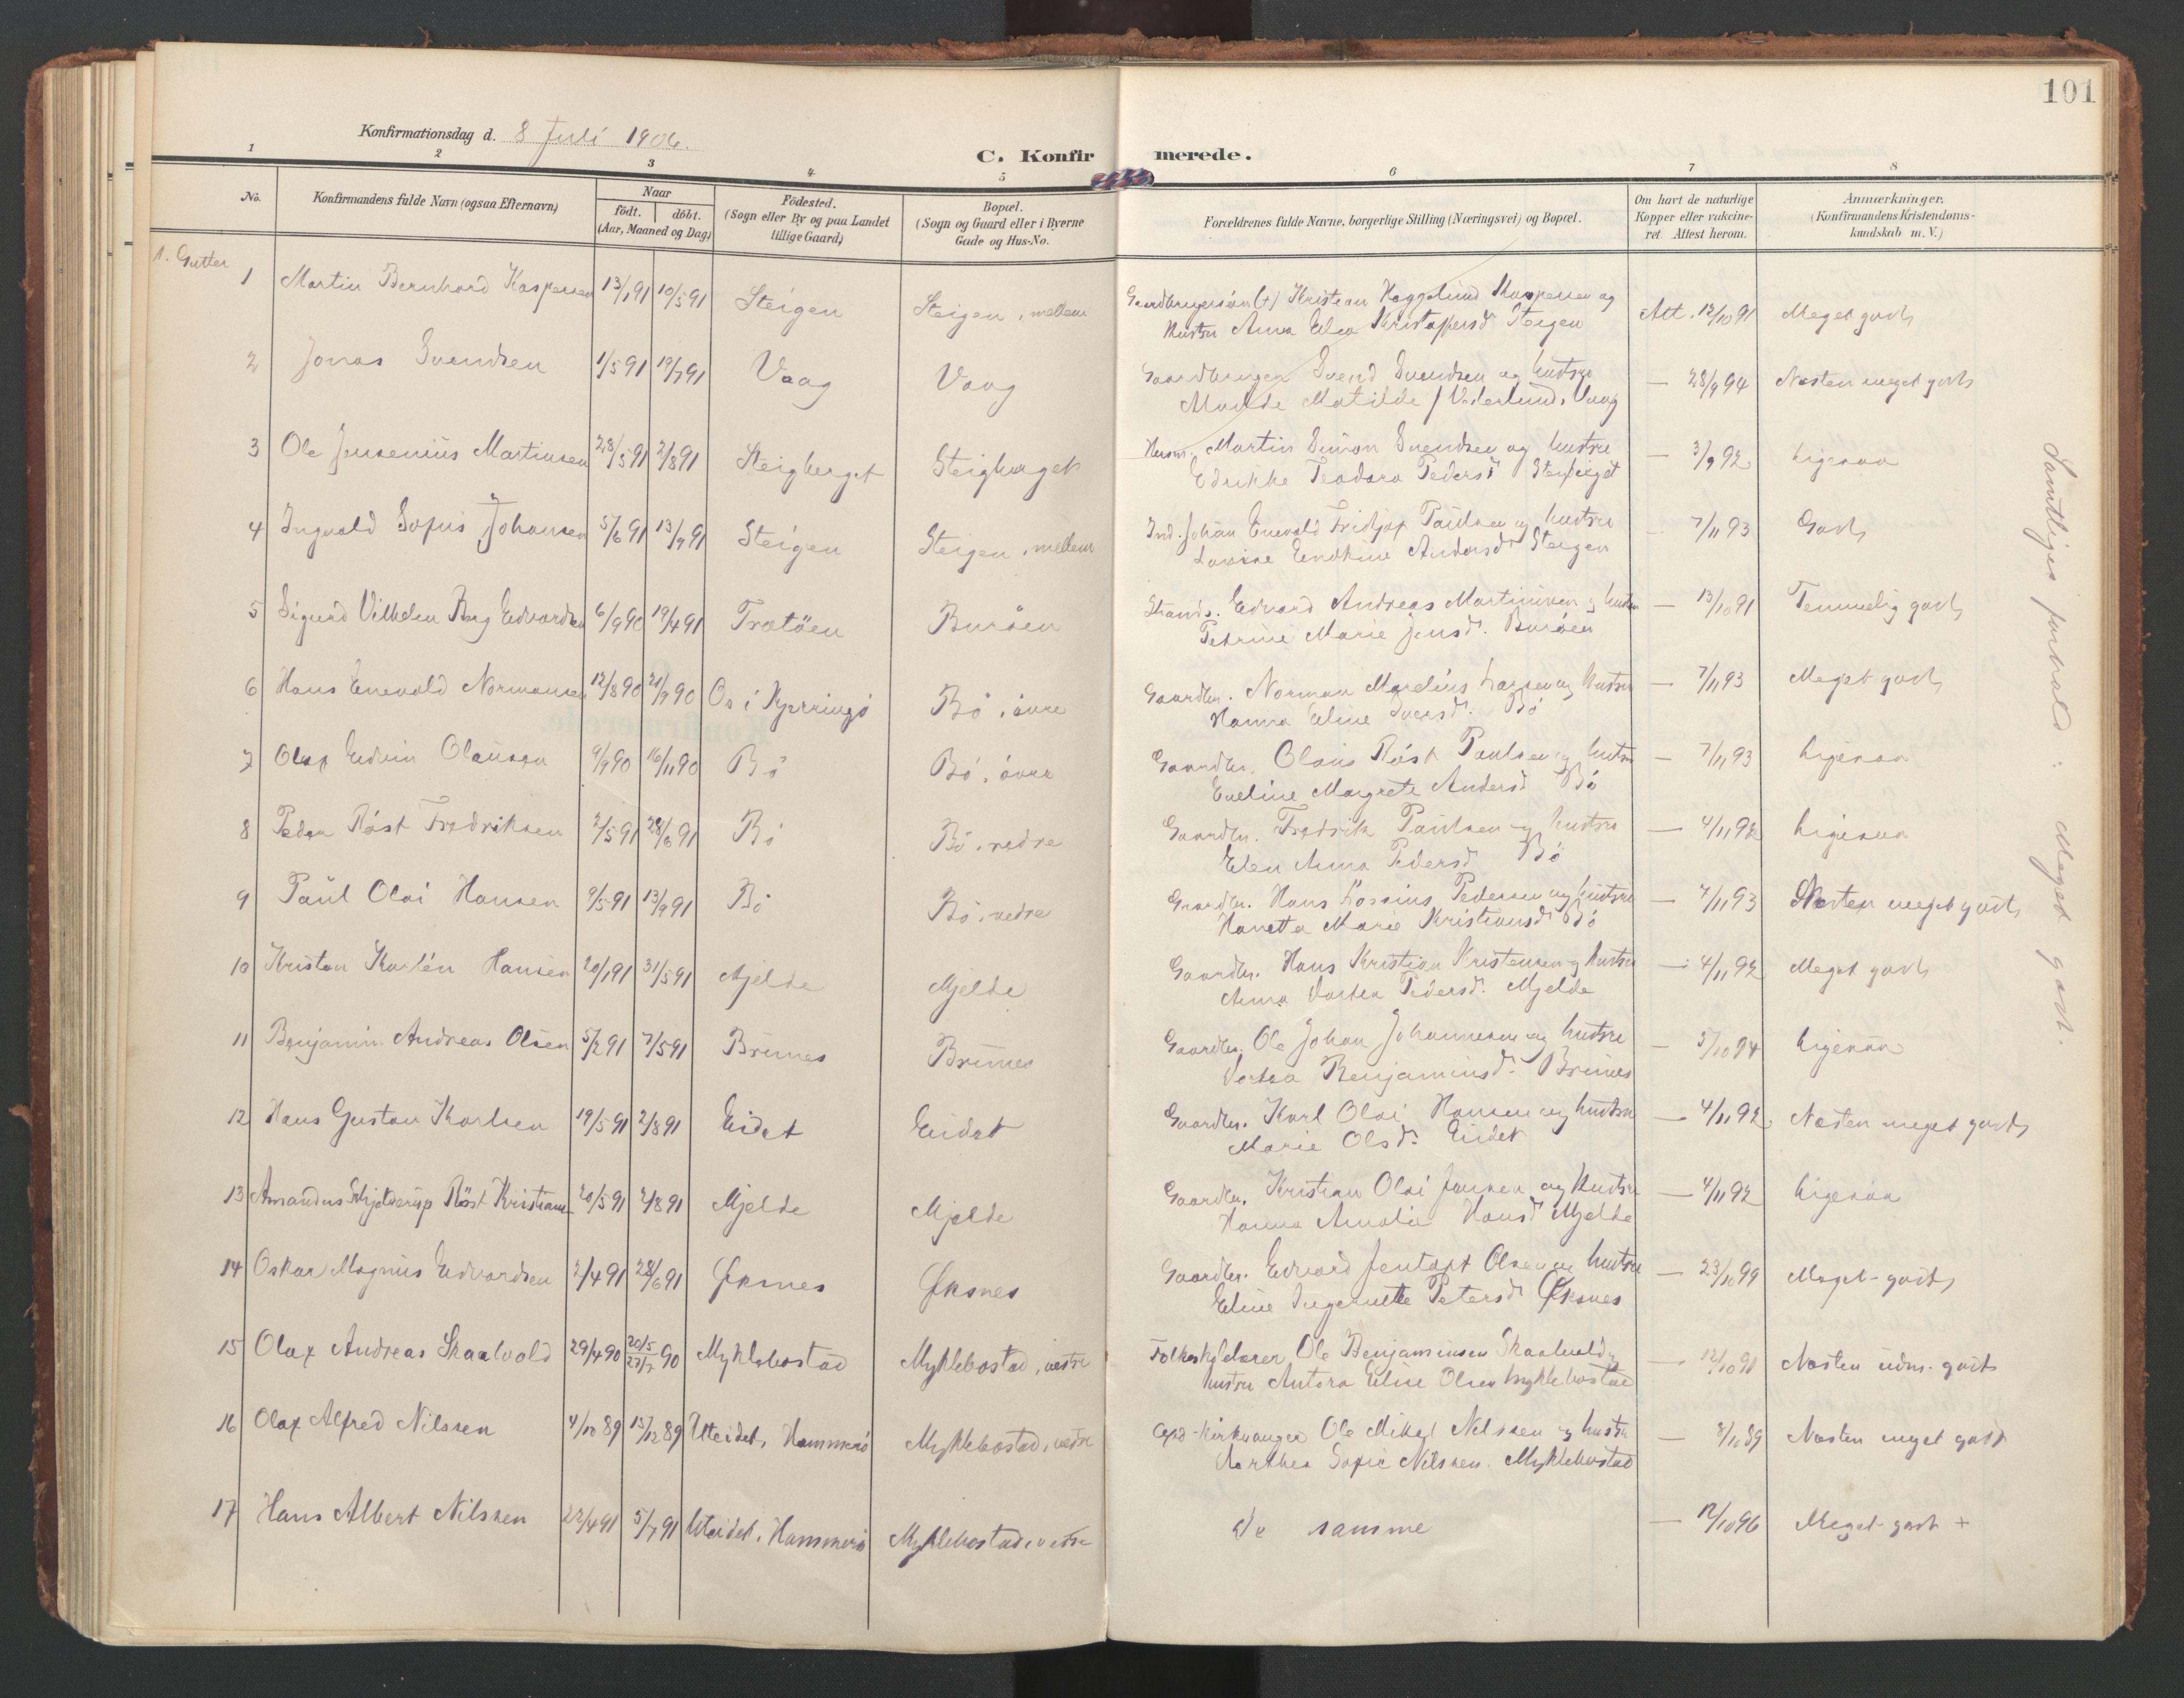 101
Konfirmationsdag d. 8 Juli 1906.
C. Konfirmerede.
1 2 3 4 5 6 7 8
No. Konfirmandens fulde Navn (ogsaa Efternavn) Naar født. døbt. (Aar, Maaned og Dag) Födested. (Sogn eller By og paa Landet tillige Gaard) Bopæl. (Sogn og Gaard eller i Byerne Gade og Hus-No. Forældrenes fulde Navne, borgerlige Stilling (Næringsvei) og Bopæl. Om havt de naturlige Kopper eller vaccineret. Attest herom. Anmærkninger. (Konfirmandens Kristendomskundskab m. V.)
1. Gutter
1 Martin Bernhard Kaspersen 13/1 91 10/5 91 Steigen Steigen, mellem Kristian Haggelund Kaspersen og
Hustru Anna Elea Kristoffersd. Steigen Att. 12/10 91 Meget godt
2 Jonas Svendsen 1/5 91 19/7 91 Vaag Vaag Gaardbruger Svend Svendsen og hustru
Matilde Vaag — 28/9 94 Næsten meget godt
3 Ole Jensenius Martinsen 28/5 91 2/8 91 Steigberget Steigberget Husm. Martin Simon Svendsen og hustru
Edrikke Teodora Pedersd. Steigberget — 3/9 92 Ligesaa
4 Ingvald Sofus Johansen 5/6 91 13/9 91 Steigen Steigen, mellem Ind. Johan Enevold Fridtjof Paulsen og hustru
Lovise Andersd. Steigen — 7/11 93 Godt
5 Sigurd Vilhelm Berg Edvardsen 6/9 90 19/4 91 Tratöen Buröen Strands. Edvard Andreas Martinsen og hustru
Petrine Marie Jensd. Buröen — 13/10 91 Temmelig godt
6 Hans Enevold Normansen 12/8 90 21/9 90 Os i Kjerringö Bö, övre Gaardbr. Norman Mardius Larsen og hustru
Hanna Eline Iversd. Bö — 7/11 93 Meget godt
7 Olaf Edvin Olausen 9/9 90 16/11 90 Bö Bö, övre Gaardbr. Olaus Röst Paulsen og hustru
Eveline Margrete Andersd. Bö — 7/11 93 Ligesaa
8 Peder Röst Fredriksen 2/5 91 28/6 91 Bö Bö, nedre Gaardbr. Fredrik Paulsen og hustru
Elen Anna Pedersd. Bö — 4/11 92 Ligesaa
9 Paul Olai Hansen 9/5 91 13/9 91 Bö Bö, nedre Gaardbr. Hans Lossius Pedersen og hustru
Hanetta Marie Kristiansd. Bö — 7/11 93 Næsten meget godt
10 Kristen Karlén Hansen 20/1 91 31/5 91 Mjelde Mjelde Gaardbr. Hans Kristian Kristensen og hustru
Anna Dortea Pedersd. Mjelde — 4/11 92 Meget godt
11 Benjamin Andreas Olsen 5/2 91 7/5 91 Brunes Brunes Gaardbr. Ole Johan Johannesen og hustru
Dortea Benjaminsd. Brunes — 5/10 94 Ligesaa
12 Hans Gustav Karlsen 19/5 91 2/8 91 Eidet Eidet Gaardbr. Karl Olai Hansen og hustru
Marie Olsd. Eidet — 4/11 92 Næsten meget godt
13 Amandus Schjelderup Röst Kristians. 20/5 91 2/8 91 Mjelde Mjelde Gaardbr. Kristian Olai Jensen og hustru
Hanna Amalie Hansd. Mjelde — 4/11 92 Ligesaa
14 Oskar Magnus Edvardsen 2/4 91 28/6 91 Øksnes Øksnes Gaardbr. Edvard Jentoft Olsen og hustru
Eline Ingernette Petersd. Øksnes — 23/10 99 Meget godt
15 Olaf Andreas Skaalvold 29/4 90 20/5 27/7 90 Myklebostad Myklebostad, vestre Folkeskolelærer Ole Benjaminsen Skaalvold og
hustru Antora Eline Olsen Myklebostad — 12/10 91 Næsten udm. godt
16 Olaf Alfred Nilssen 4/10 89 15/12 89 Uteidet, Hammerö Myklebostad, vestre Kirkesanger Ole Mikal Nilssen og hustru
Dorthea Sofie Nilssen. Myklebostad — 8/10 89 Næsten meget godt
17 Hans Albert Nilssen 22/4 91 5/7 91 Uteidet, Hammerö Myklebostad, vestre de samme — 12/10 96 Meget godt +
Samtliges forhold: Meget godt.